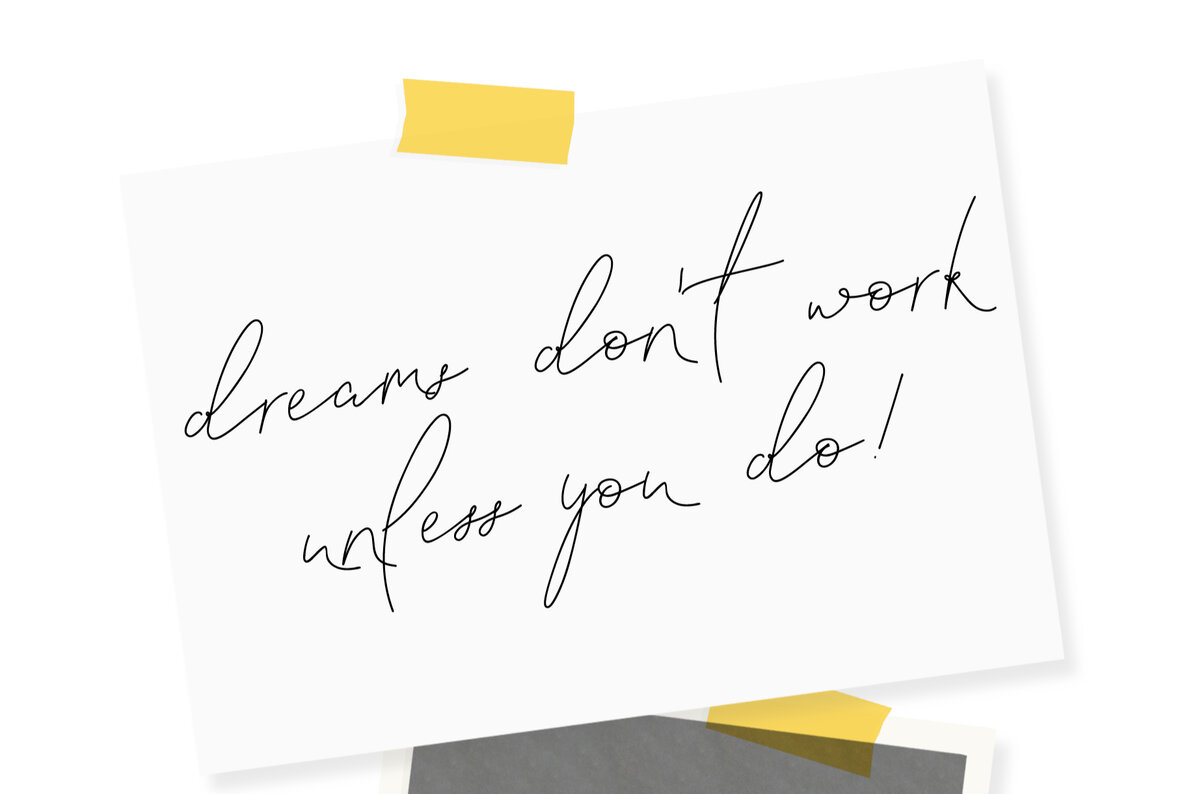 dreams don't work
unless you do!